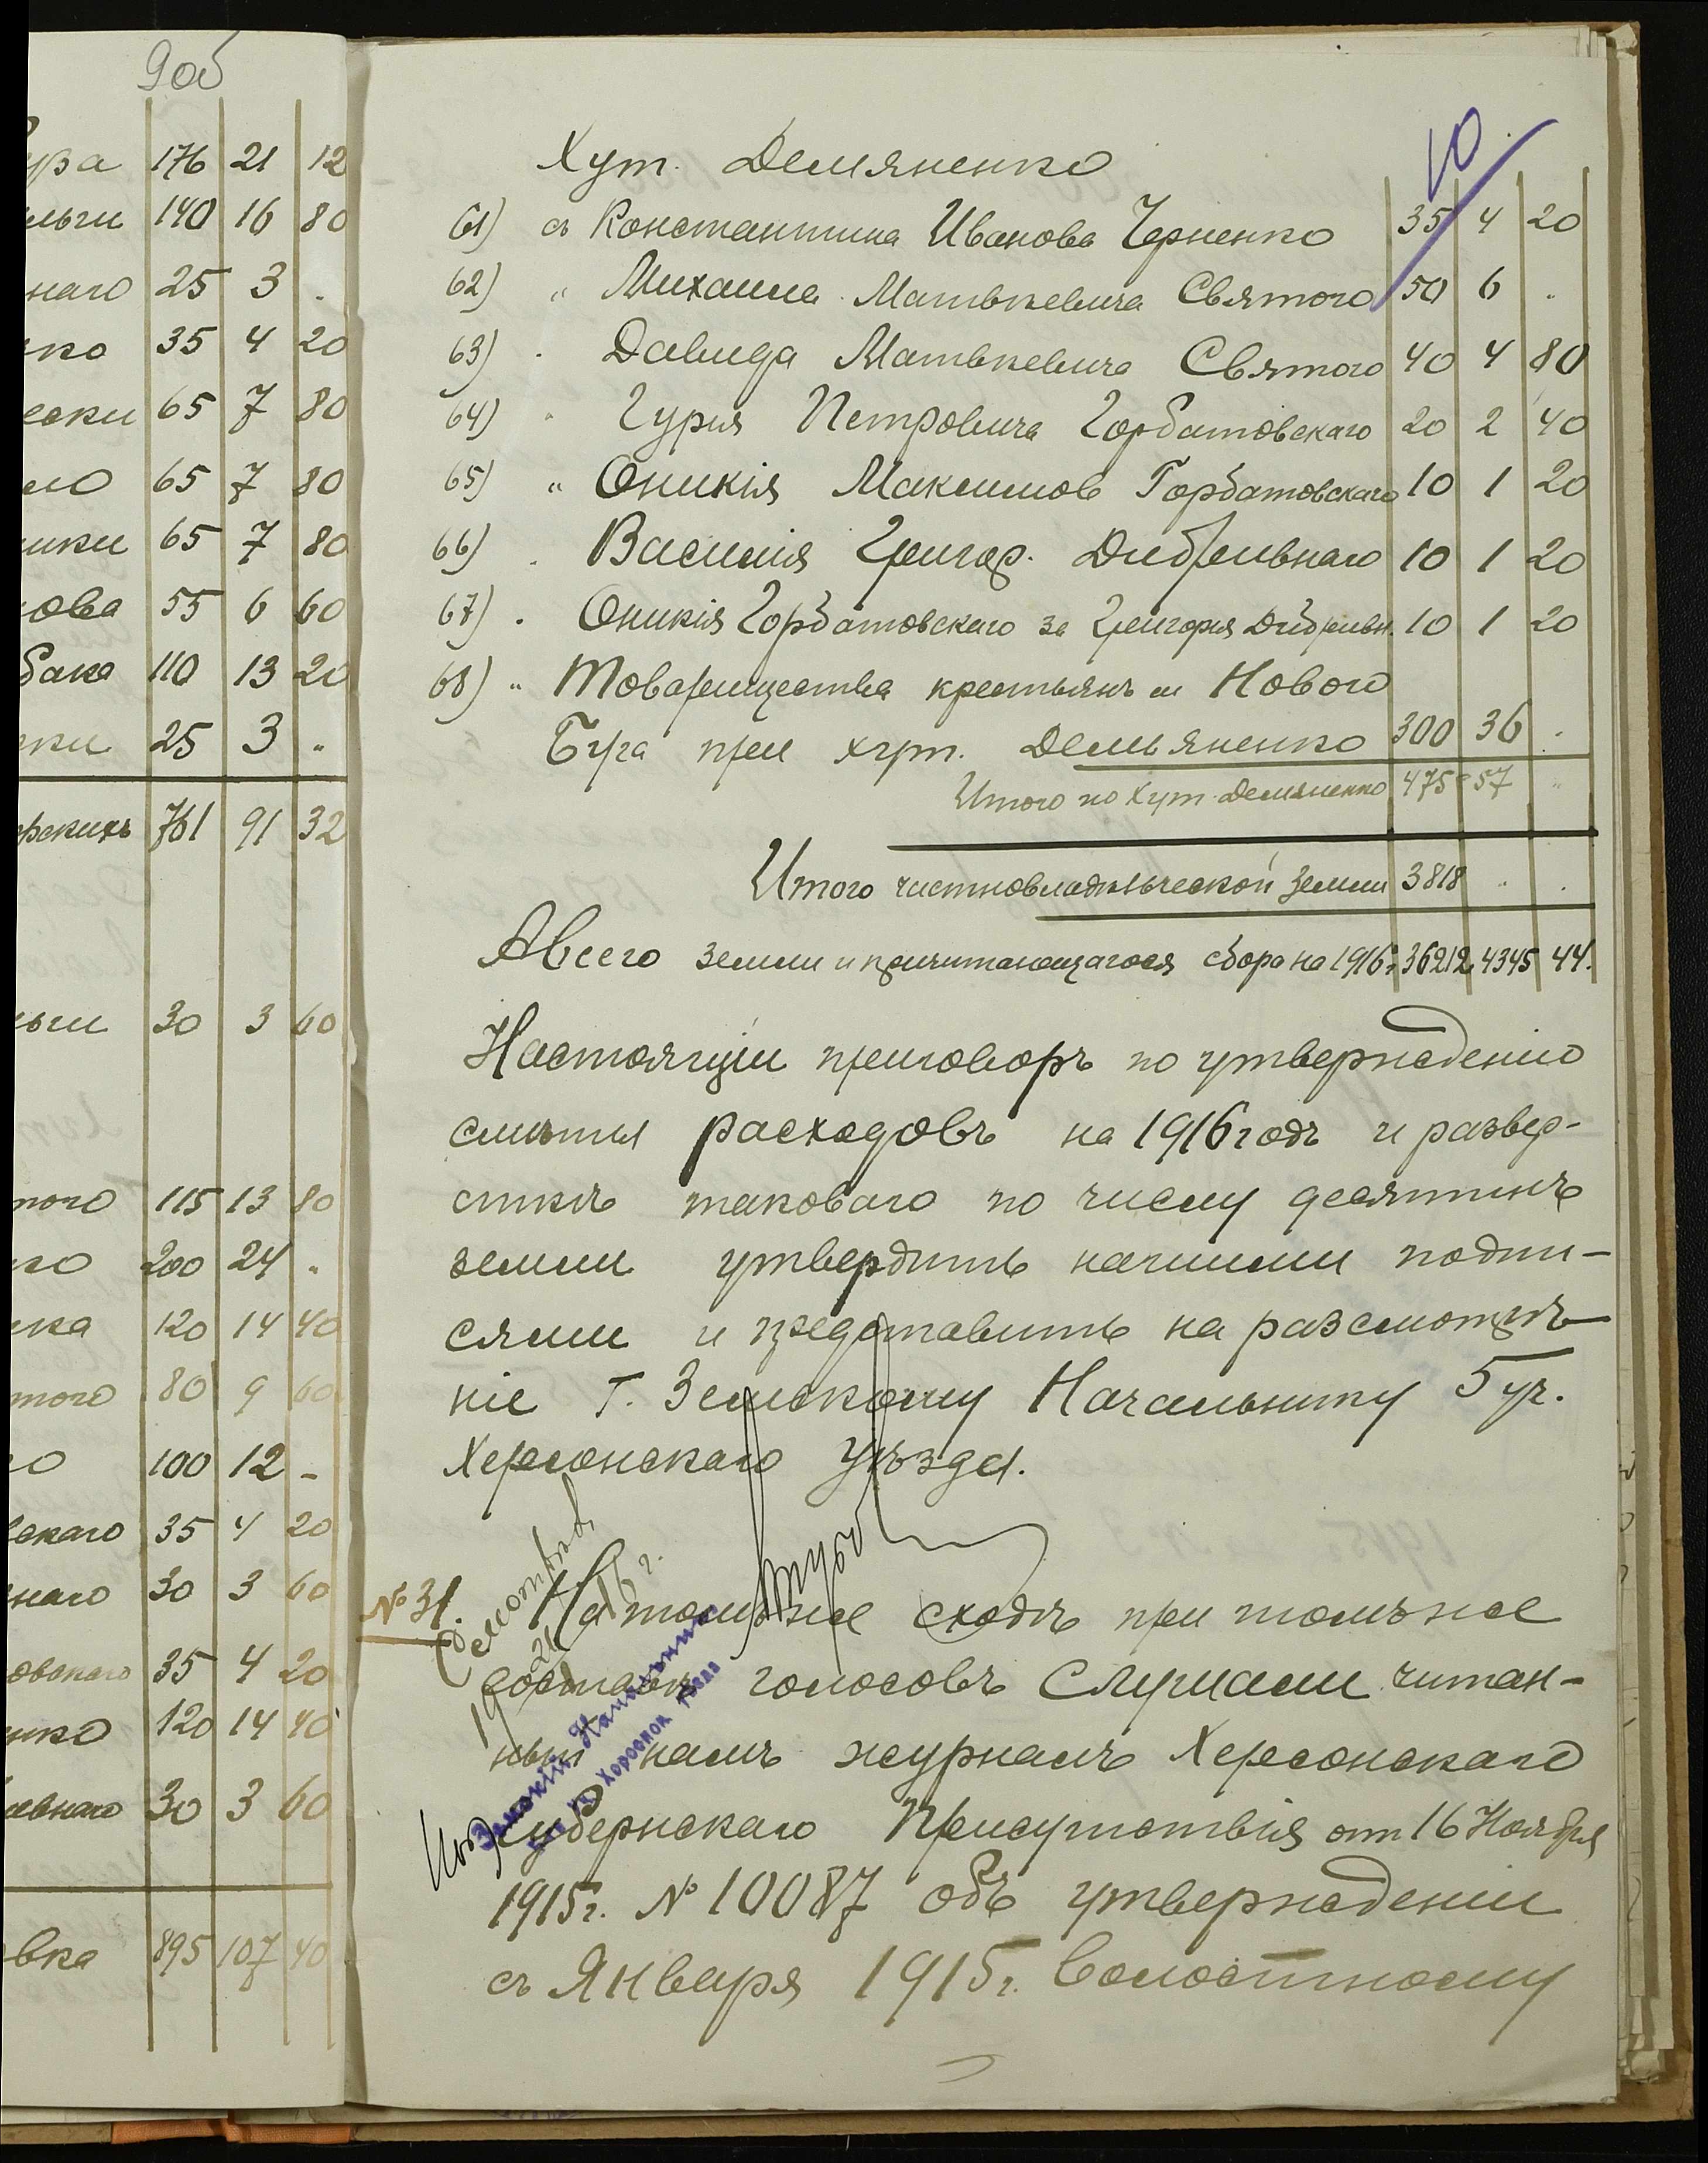 9об
ура 176 21 12
льги 140 16 80
наго 25 3 .
ко 35 4 20
ески 65 7 80
ло 65 7 80
ики 65 7 80
кова 55 6 60
бака 110 13 20
ки 25 3 "
рскихъ 761 91 32
льги 30 3 60
того 115 13 80
ко 200 24 "
ика 120 14 40
того 80 9 60
о 100 12 -
скаго 35 4 20
наго 30 3 60
овскаго 35 4 20
нко 120 14 40
ивнаго 30 3 60
вка 895 107 40
10
Хут. Демяненко
61) съ Константина Иванова Черненко 35 4 20
62) " Михаила Матвѣевича Святого 50 6 "
63) " Давида Матвѣевича Святого 40 4 80
64) " Гурия Петровича Горбатовскаго 20 2 40
65) " Оникія Максимов Горбатовскаго 10 1 20
66) . Василія Григор. Дибривнаго 10 1 20
67) . Оникія Горбатовскаго за Григория Дибривн. 10 1 20
68) " Товарищества крестьянъ м Нового
Буга при хут. Демьяненко 300 36 .
Итого по Хут. Демяненко 475 57 "
Итого частновладѣльческой земли 3818 . .
А всего земли и причитающагося сбора на 1916 г. 36212 4345 44.
Настоящій приговоръ по утвержденію
смѣты расходовъ на 1916 годъ и развер-
сткѣ таковаго по числу десятинъ
земли утвердить нашими подпи-
сями и представить на разсмотрѣ-
ніе Г. Земскому Начальнику 5 уч.
Херсонскаго уѣзда.
№ 31. На томъ же сходѣ при томъ же
составѣ голосовъ слушали читан-
ный намъ журналъ Херсонскаго
Губернскаго Присутствія от 16 Ноября
1915 г. № 10087 объ утвержденіи
съ Января 1915 г. Волостному
Земскій Начальникъ